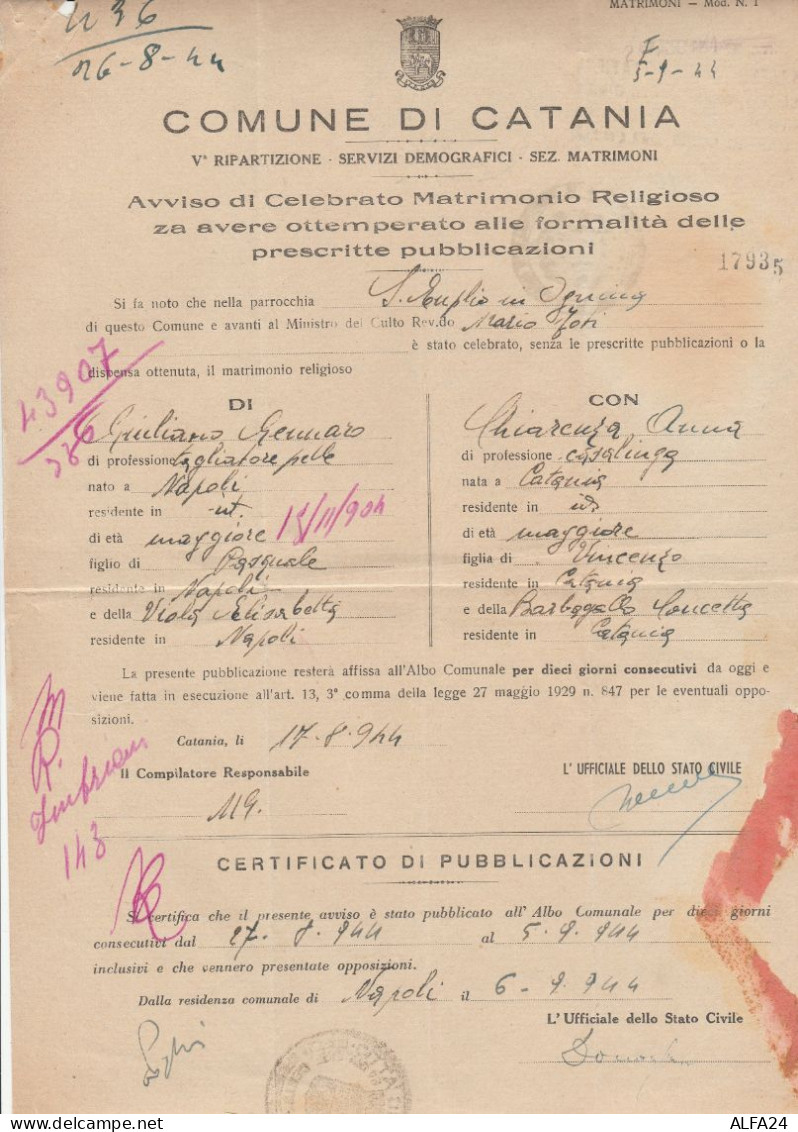 MATRIMONI — Mod. N. 1
n 36
26-8-44
5-9-44
COMUNE DI CATANIA
Vª RIPARTIZIONE - SERVIZI DEMOGRAFICI - SEZ. MATRIMONI
Avviso di Celebrato Matrimonio Religioso
za avere ottemperato alle formalità delle
prescritte pubblicazioni
17935
Si fa noto che nella parrocchia S. Euplio in
di questo Comune e avanti al Ministro del Culto Rev.do Mario
è stato celebrato, senza le prescritte pubblicazioni o la
dispensa ottenuta, il matrimonio religioso
43907
DI
Giuliano Gennaro
di professione tagliatore pelle
nato a Napoli
residente in ut.
di età maggiore 15/11/904
figlio di Pasquale
residente in Napoli
e della Viola Elisabetta
residente in Napoli
CON
Chiarenza Anna
di professione casalinga
nata a Catania
residente in id
di età maggiore
figlia di Vincenzo
residente in Catania
e della Barbagallo Concetta
residente in Catania
La presente pubblicazione resterà affissa all'Albo Comunale per dieci giorni consecutivi da oggi e
viene fatta in esecuzione all'art. 13, 3º comma della legge 27 maggio 1929 n. 847 per le eventuali oppo-
sizioni.
Catania, li 17-8-944
Il Compilatore Responsabile
L'UFFICIALE DELLO STATO CIVILE
MG.
R.
Imbriani
143
CERTIFICATO DI PUBBLICAZIONI
Si certifica che il presente avviso è stato pubblicato all'Albo Comunale per dieci giorni
consecutivi dal 27-8-944 al 5-9-944
inclusivi e che vennero presentate opposizioni.
Dalla residenza comunale di Napoli il 6-9-944
L'Ufficiale dello Stato Civile
ALFA24